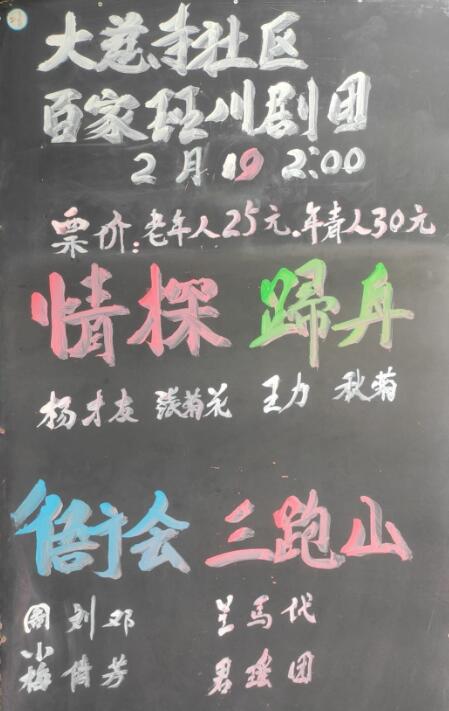 大慈寺社区
百家班川剧团
2月19 2:00
票价:老年人25元.年青人30元
情探 蹄舟
杨才友 張菊花 王力 秋菊
悟计会 三跑山
周小梅 刘倩 邓芳
兰君 馬瑶 代团